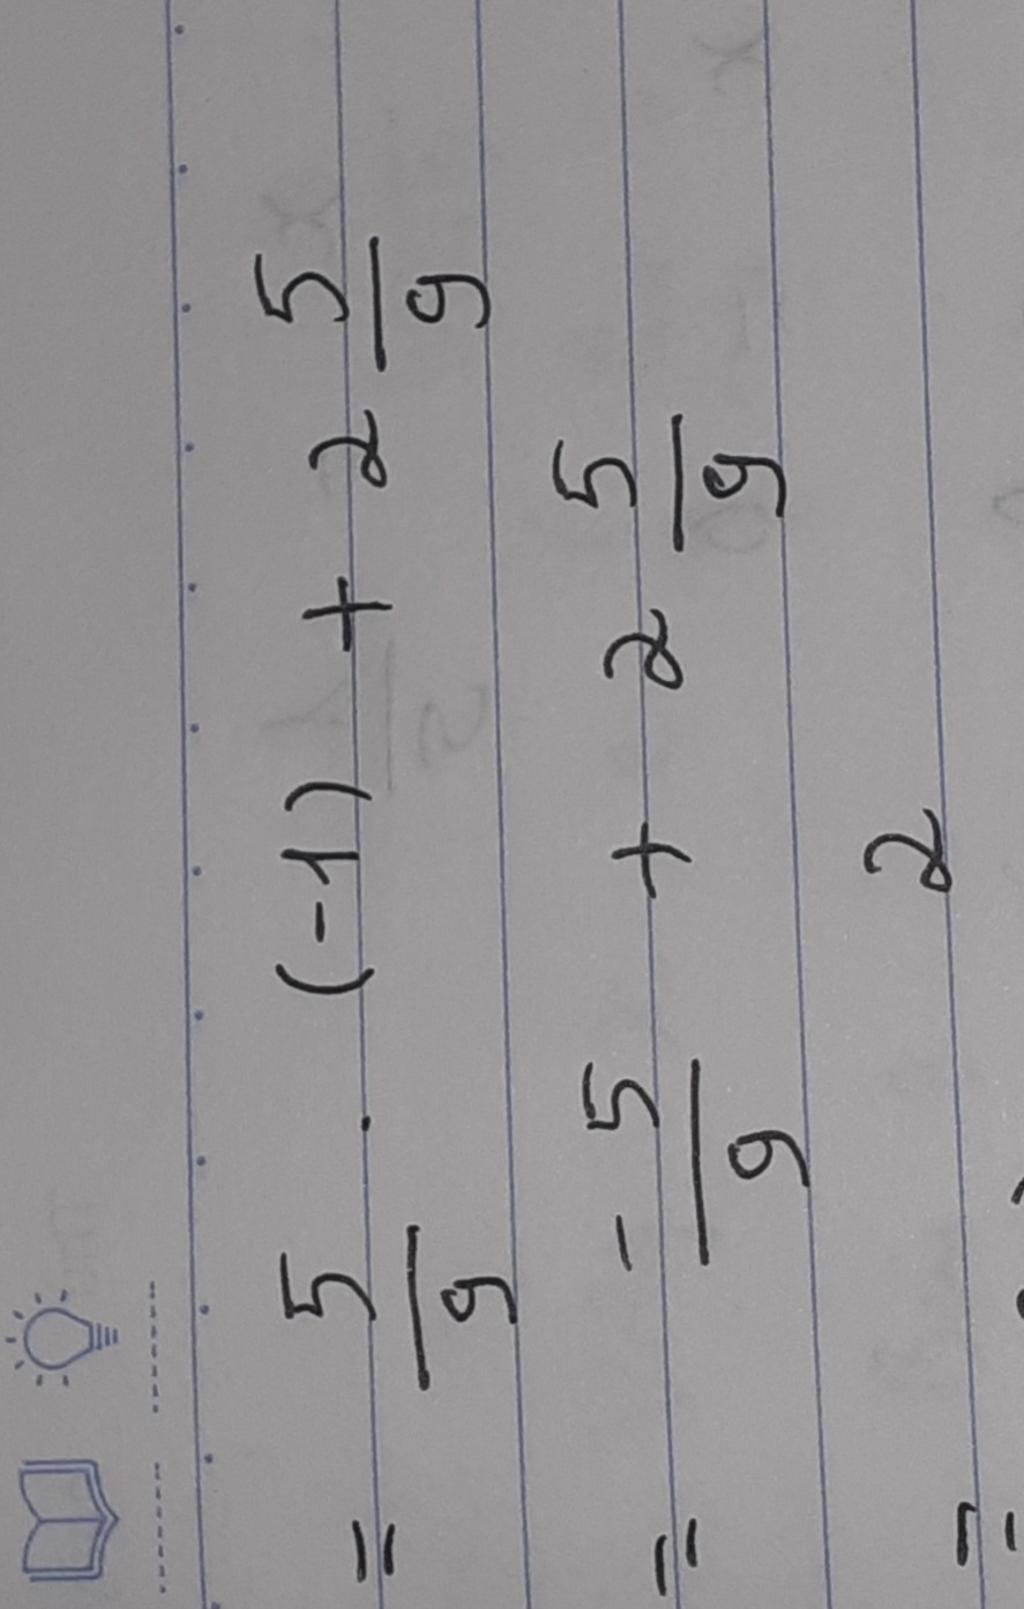 = 5/9 · (-1) + 2 5/9
= -5/9 + 2 5/9
= 2